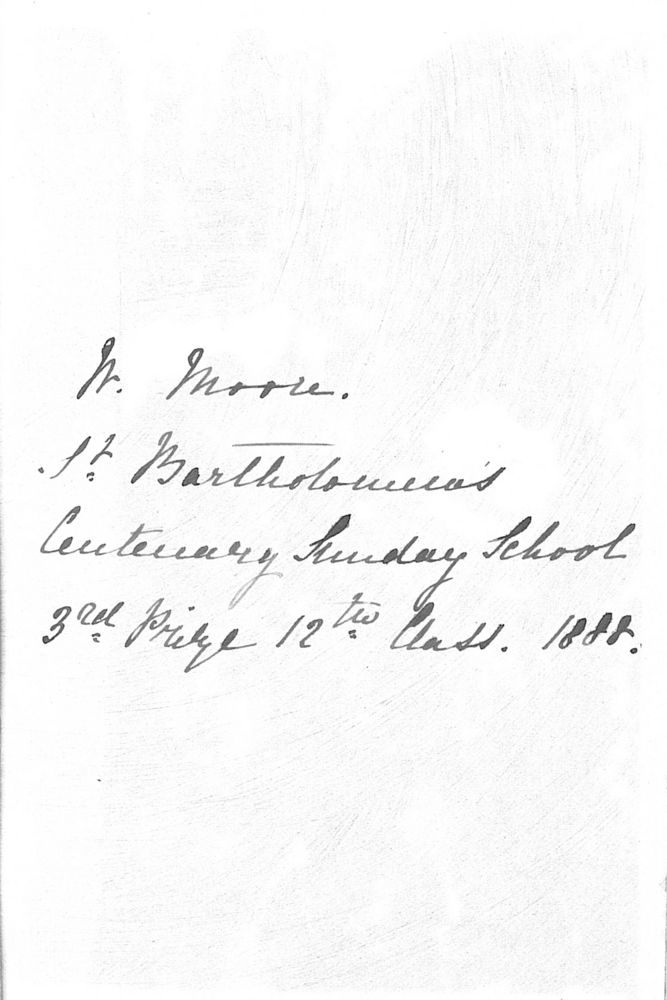 W. Moore.
St Bartholomew's
Centenary Sunday School
3rd Prize 12th Class. 1888.